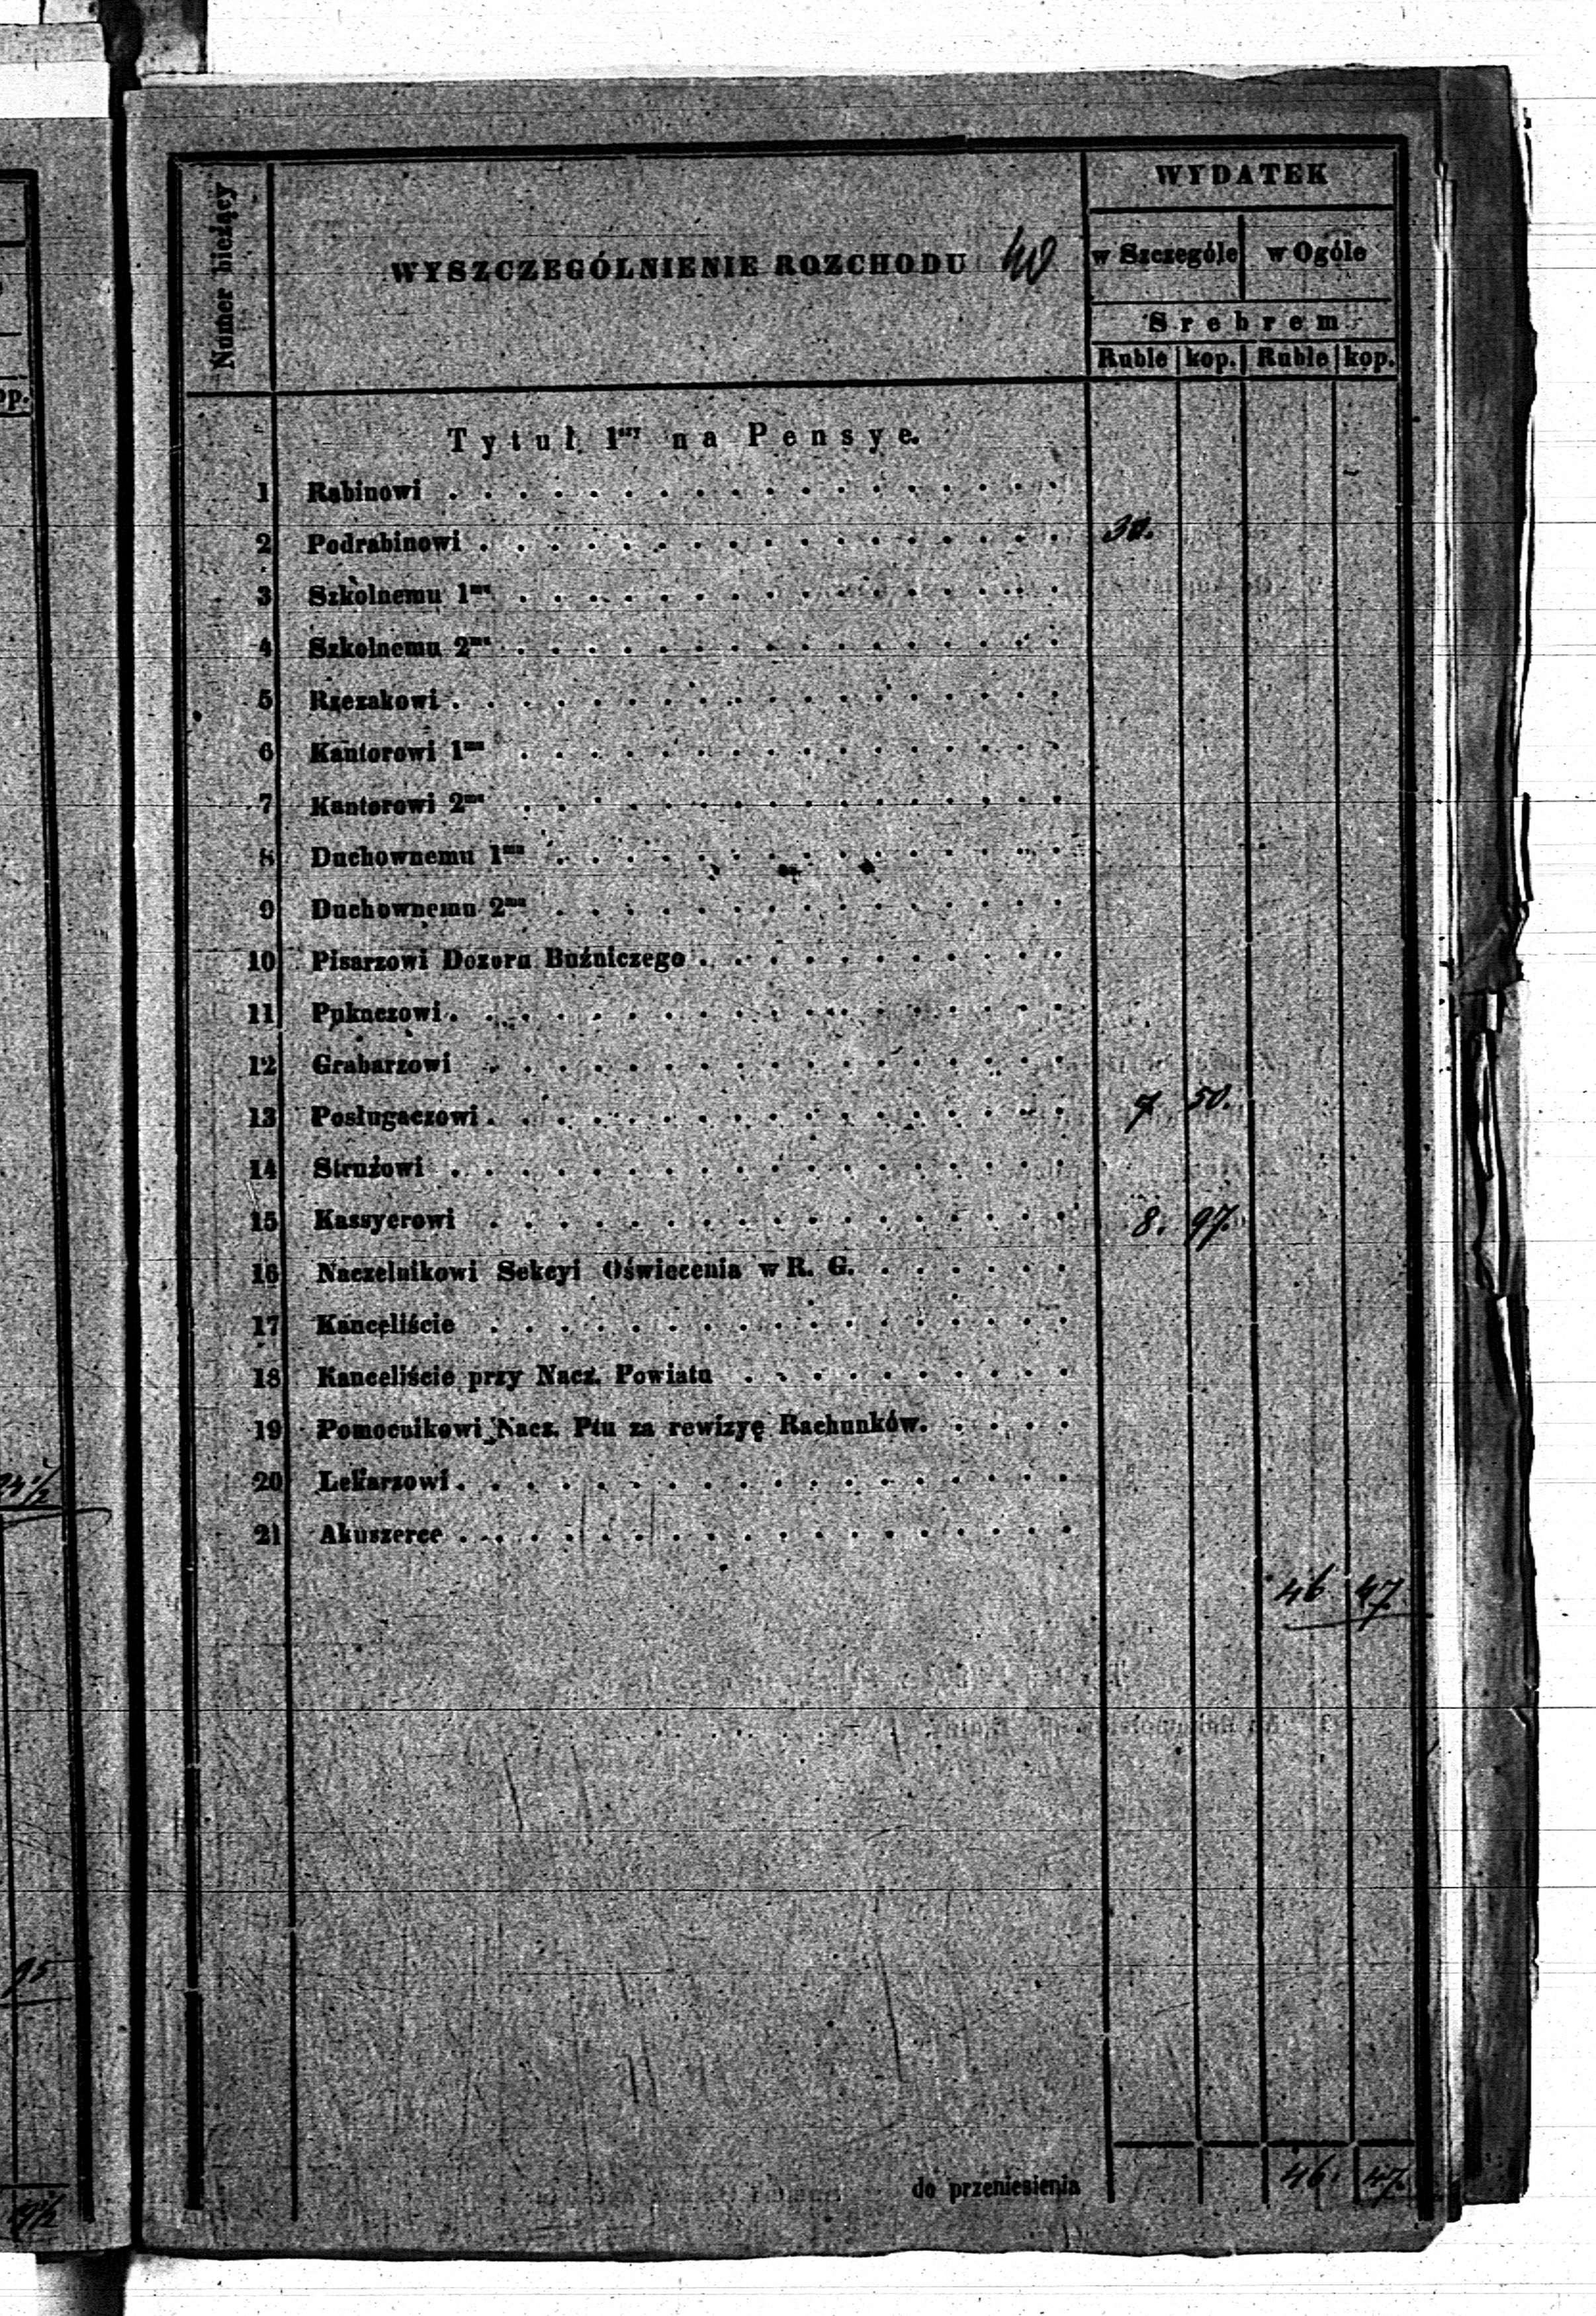 WYDATEK
Numer bieżący
WYSZCZEGÓLNIENIE ROZCHODU 40
w Szczególe w Ogóle
Srebrem
Ruble kop. Ruble kop.
op.
Tytuł 1szy na Pensye.
1 Rabinowi
2 Podrabinowi 30.
3 Szkolnemu 1mu
4 Szkolnemu 2mu
5 Rzezakowi
6 Kantorowi 1mu
7 Kantorowi 2mu
8 Duchownemu 1mu
9 Duchownemu 2mu
10 Pisarzowi Dozoru Bużniczego
11 Pukaczowi
12 Grabarzowi
13 Posługaczowi 7 50.
14 Strużowi
15 Kassyerowi 8. 97.
16 Naczelnikowi Sekcyi Oświecenia w R. G.
17 Kanceliście
18 Kanceliście przy Nacz. Powiatu
19 Pomocnikowi Nacz. Ptu za rewizyę Rachunków.
20 Lekarzowi
21 Akuszerce
46 47
95
do przeniesienia 46. 47.